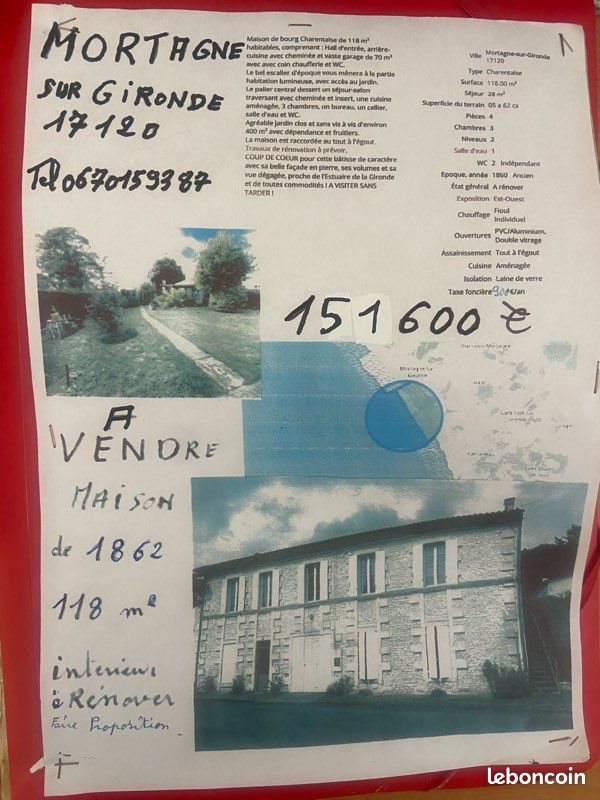 MORTAGNE
SUR GIRONDE
17120
Tel 0670159387
Maison de bourg Charentaise de 118 m²
habitables, comprenant : Hall d'entrée, arrière-
cuisine avec cheminée et vaste garage de 70 m²
avec avec coin chaufferie et WC.
Le bel escalier d'époque vous mènera à la partie
habitation lumineuse, avec accès au jardin.
Le palier central dessert un séjour-salon
traversant avec cheminée et insert, une cuisine
aménagée, 3 chambres, un bureau, un cellier,
salle d'eau et WC.
Agréable jardin clos et sans vis à vis d'environ
400 m² avec dépendance et fruitiers.
La maison est raccordée au tout à l'égout.
Travaux de rénovation à prévoir.
COUP DE COEUR pour cette bâtisse de caractère
avec sa belle façade en pierre, ses volumes et sa
vue dégagée, proche de l'Estuaire de la Gironde
et de toutes commodités ! A VISITER SANS
TARDER !
Ville Mortagne-sur-Gironde
17120
Type Charentaise
Surface 118.00 m²
Séjour 28 m²
Superficie du terrain 05 a 62 ca
Pièces 4
Chambres 3
Niveaux 2
Salle d'eau 1
WC 2 Indépendant
Epoque, année 1860 Ancien
État général A rénover
Exposition Est-Ouest
Chauffage Fioul
Individuel
Ouvertures PVC/Aluminium,
Double vitrage
Assainissement Tout à l'égout
Cuisine Aménagée
Isolation Laine de verre
Taxe foncière 900 €/an
151600 €
Mortagne-sur-
Gironde
A
VENDRE
MAISON
de 1862
118 m²
interieur
à Rénover
Faire Proposition.
leboncoin